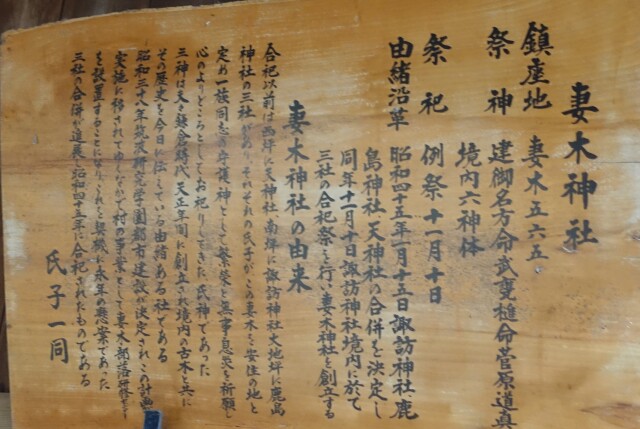 妻木神社
鎮座地 妻木五六五
祭神 建御名方命武甕槌命菅原道真
境内六神体
祭祀 例祭十一月十日
由緒沿革 昭和四十五年一月十五日諏訪神社、鹿
島神社、天神社の合併を決定し
同年十一月十日諏訪神社境内に於て
三社の合祀祭を行い妻木神社を創立する
妻木神社の由来
合祀以前は西坪に天神社南坪に諏訪神社大地坪に鹿島
神社の三社があり、それぞれの氏子がこの妻木を安住の地と
定め一族同志の守護神として繁栄と無事息災を祈願し
心のよりどころとしてお祀りしてきた氏神であった
三神は夫々鎌倉時代天正年間に創立され境内の古木と共に
その歴史を今日に伝えている由緒ある社である
昭和三十八年筑波研究学園都市建設が決定されこの計画
実施に移されてゆくなかで村の事業として妻木部落研修センター
を設置することになりこれを契機に永年の懸案であった
三社の合併が進展し昭和四十五年に合祀されたものである
氏子一同